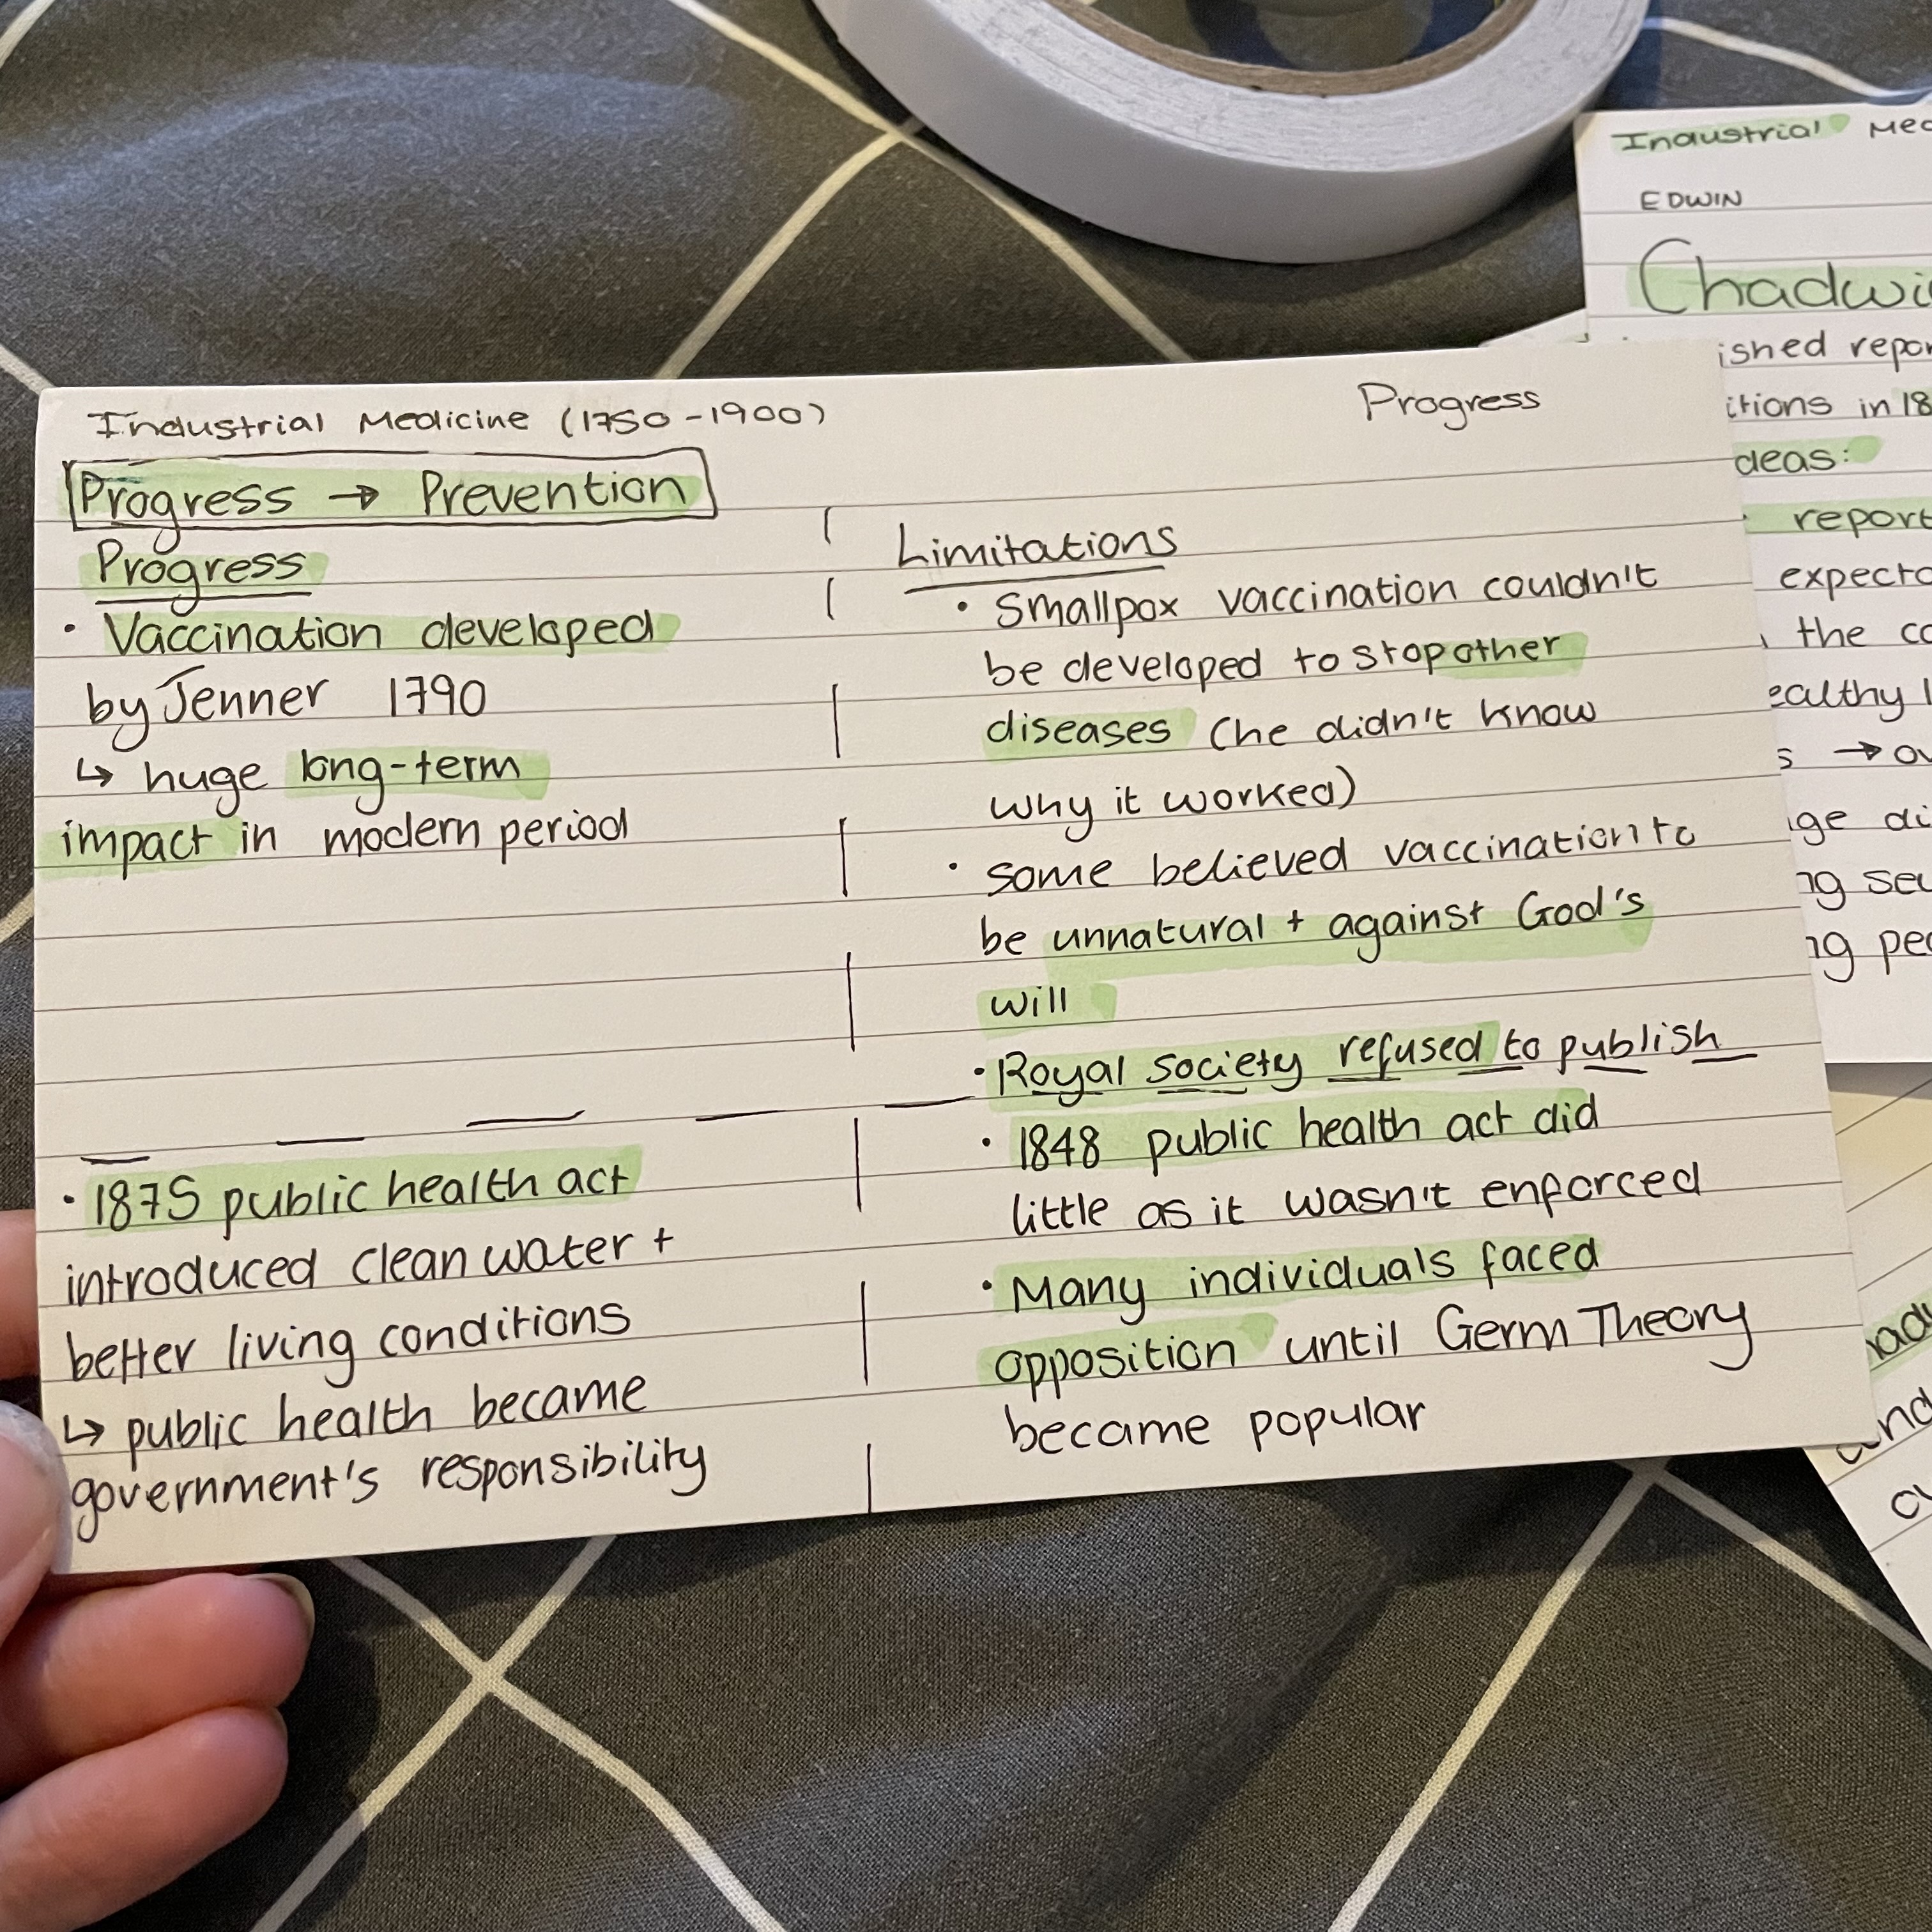 Industrial Medicine (1750-1900)
Progress
Progress → Prevention
Progress
• Vaccination developed
by Jenner 1790
↳ huge long-term
impact in modern period
• 1875 public health act
introduced clean water +
better living conditions
↳ public health became
government's responsibility
Limitations
• Smallpox vaccination couldn't
be developed to stop other
diseases (he didn't know
why it worked)
• some believed vaccination to
be unnatural + against God's
will
• Royal society refused to publish
• 1848 public health act did
little as it wasn't enforced
• Many individuals faced
opposition until Germ Theory
became popular
Industrial
EDWIN
report
the